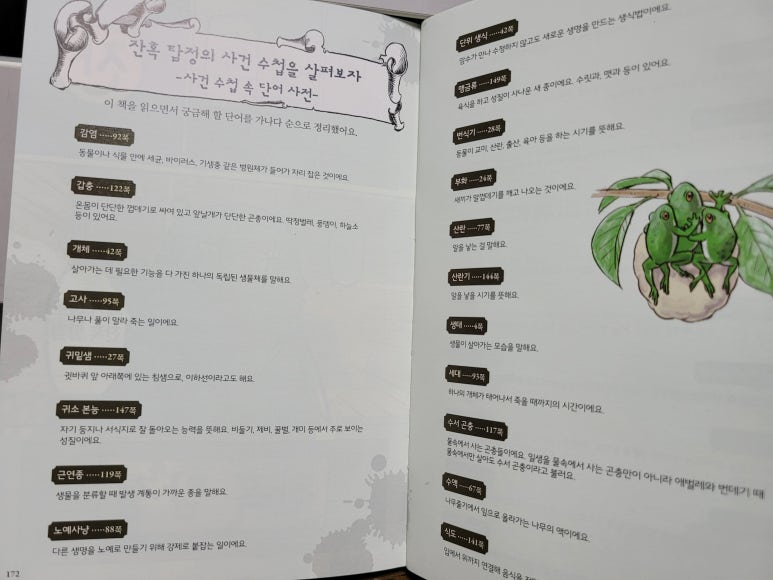 잔혹 탐정의 사건 수첩을 살펴보자
-사건 수첩 속 단어 사전-
이 책을 읽으면서 궁금해 할 단어를 가나다 순으로 정리했어요.
감염 ·····92쪽
동물이나 식물 안에 세균, 바이러스, 기생충 같은 병원체가 들어가 자리 잡은 것이에요.
갑충 ·····122쪽
온몸이 단단한 껍데기로 싸여 있고 앞날개가 단단한 곤충이에요. 딱정벌레, 풍뎅이, 하늘소
등이 있어요.
개체 ·····42쪽
살아가는 데 필요한 기능을 다 가진 하나의 독립된 생물체를 말해요.
고사 ·····95쪽
나무나 풀이 말라 죽는 일이에요.
귀밑샘 ·····27쪽
귓바퀴 앞 아래쪽에 있는 침샘으로, 이하선이라고도 해요.
귀소 본능 ·····147쪽
자기 둥지나 서식지로 잘 돌아오는 능력을 뜻해요. 비둘기, 제비, 꿀벌, 개미 등에서 주로 보이는
성질이에요.
근연종 ·····119쪽
생물을 분류할 때 발생 계통이 가까운 종을 말해요.
노예사냥 ·····88쪽
다른 생명을 노예로 만들기 위해 강제로 붙잡는 일이에요.
172
단위 생식 ·····42쪽
암수가 만나 수정하지 않고도 새로운 생명을 만드는 생식법이에요.
맹금류 ·····149쪽
육식을 하고 성질이 사나운 새 종이에요. 수릿과, 맷과 등이 있어요.
번식기 ·····28쪽
동물이 교미, 산란, 출산, 육아 등을 하는 시기를 뜻해요.
부화 ·····24쪽
새끼가 알껍데기를 깨고 나오는 것이에요.
산란 ·····77쪽
알을 낳는 걸 말해요.
산란기 ·····144쪽
알을 낳을 시기를 뜻해요.
생태 ·····6쪽
생물이 살아가는 모습을 말해요.
세대 ·····93쪽
하나의 개체가 태어나서 죽을 때까지의 시간이에요.
수서 곤충 ·····117쪽
물속에서 사는 곤충들이에요. 일생을 물속에서 사는 곤충만이 아니라 애벌레와 번데기 때
물속에서만 살아도 수서 곤충이라고 불러요.
수액 ·····67쪽
나무줄기에서 잎으로 올라가는 나무의 액이에요.
식도 ·····141쪽
입에서 위까지 연결해 음식을